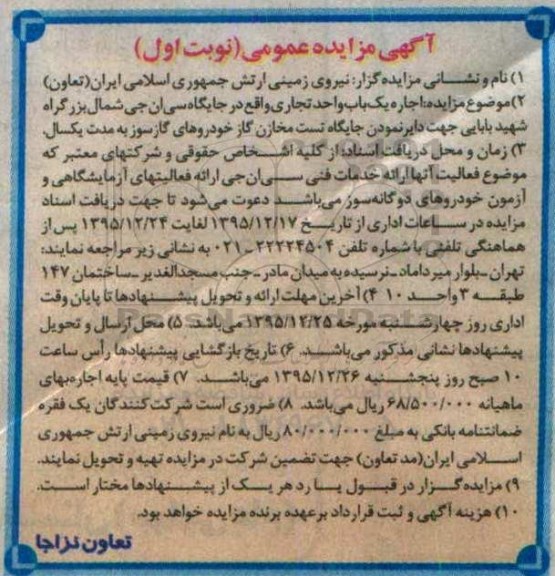 آگهی مزایده عمومی(نوبت اول)
۱) نام و نشانی مزایده گزار: نیروی زمینی ارتش جمهوری اسلامی ایران(تعاون)
۲)موضوع مزایده:اجاره یک باب واحد تجاری واقع در جایگاه سی ان جی شمال بزرگراه
شهید بابایی جهت دایر نمودن جایگاه تست مخازن گاز خودروهای گازسوز به مدت یکسال.
۳) زمان و محل دریافت اسناد: از کلیه اشخاص حقوقی و شرکتهای معتبر که
موضوع فعالیت آنها ارائه خدمات فنی سی ان جی ارائه فعالیتهای آزمایشگاهی و
آزمون خودروهای دوگانه سوز می باشد دعوت می شود تا جهت دریافت اسناد
مزایده در ساعات اداری از تاریخ ۱۳۹۵/۱۲/۱۷ لغایت ۱۳۹۵/۱۲/۲۴ پس از
هماهنگی تلفنی با شماره تلفن ۲۲۲۲۴۵۰۴ -۰۲۱ به نشانی زیر مراجعه نمایند:
تهران -بلوار میرداماد -نرسیده به میدان مادر -جنب مسجدالغدیر -ساختمان ۱۴۷
طبقه ۳ واحد ۱۰ ۴) آخرین مهلت ارائه و تحویل پیشنهادها تا پایان وقت
اداری روز چهارشنبه مورخه ۱۳۹۵/۱۲/۲۵ می باشد. ۵) محل ارسال و تحویل
پیشنهادها نشانی مذکور می باشد. ۶) تاریخ بازگشایی پیشنهادها رأس ساعت
۱۰ صبح روز پنجشنبه ۱۳۹۵/۱۲/۲۶ می باشد. ۷) قیمت پایه اجاره بهای
ماهیانه ۶۸/۵۰۰/۰۰۰ ریال می باشد. ۸) ضروری است شرکت کنندگان یک فقره
ضمانتنامه بانکی به مبلغ ۸۰/۰۰۰/۰۰۰ ریال به نام نیروی زمینی ارتش جمهوری
اسلامی ایران(مد تعاون) جهت تضمین شرکت در مزایده تهیه و تحویل نمایند.
۹) مزایده گزار در قبول یا رد هر یک از پیشنهادها مختار است.
۱۰) هزینه آگهی و ثبت قرارداد بر عهده برنده مزایده خواهد بود.
تعاون نزاجا